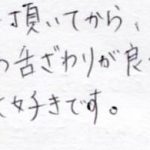 頂いてから、
舌ざわりが良
好きです。